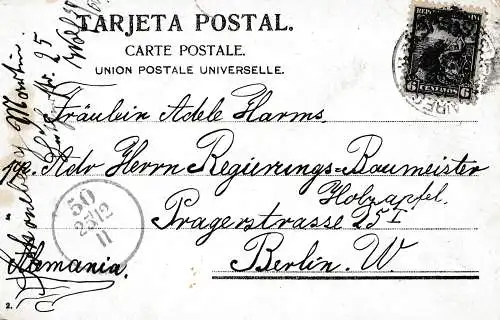 TARJETA POSTAL.
CARTE POSTALE.
UNION POSTALE UNIVERSELLE.
Fräulein Adele Harms.
pr. Adr Herrn Regierungs-Baumeister
Holzapfel.
Pragerstrasse 25 I
Berlin. W.
Alemania.
50
25/12
11
6 CENTAVOS 6
AIRES
Schöneberg Martin
25
2.